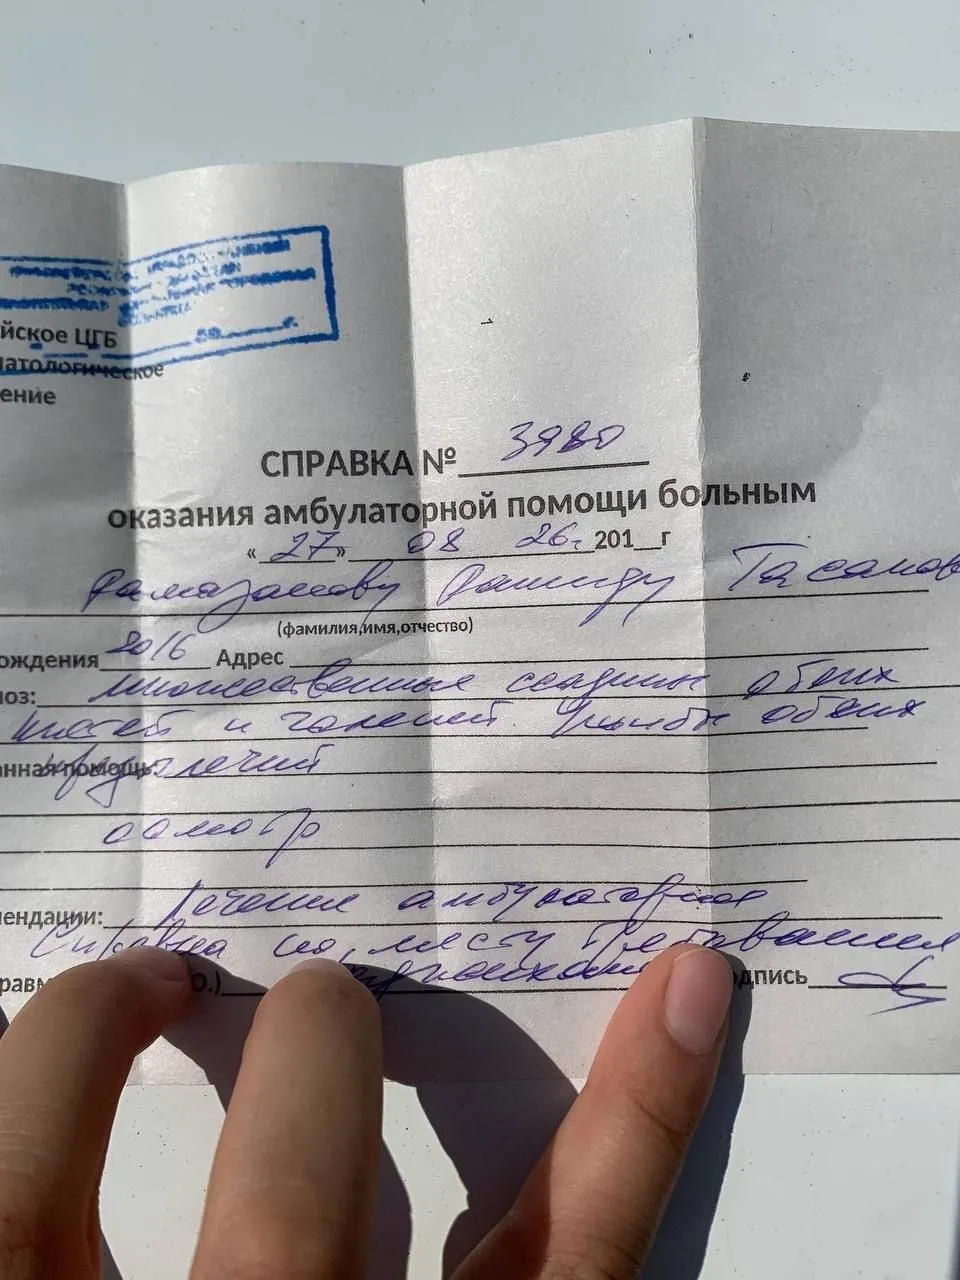 йское ЦГБ
матологическое
ение
СПРАВКА № 3980
оказания амбулаторной помощи больным
« 27 » 08 26г. 201__г
Рамазанову Рашиду Гасанов
(фамилия,имя,отчество)
ождения 2016 Адрес
ноз: множественные ссадины обеих
кистей и голеней. Ушибы обеих
анная помощь: предплечий
осмотр
мендации: Лечение амбулаторное
Справка по месту требования
равм О.) одпись